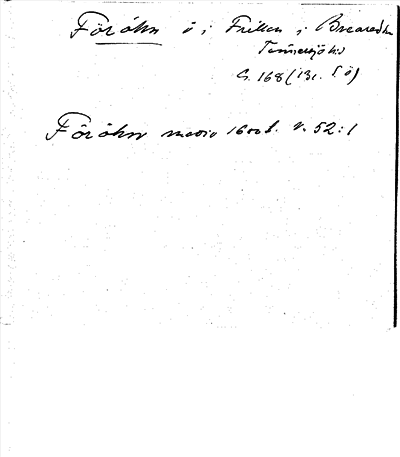 Föröhn ö i Fillen i Breared sn
Tönnersjö hd
G. 168 (13c. SÖ)
Föröhn medio 1600 t. v. 52:1